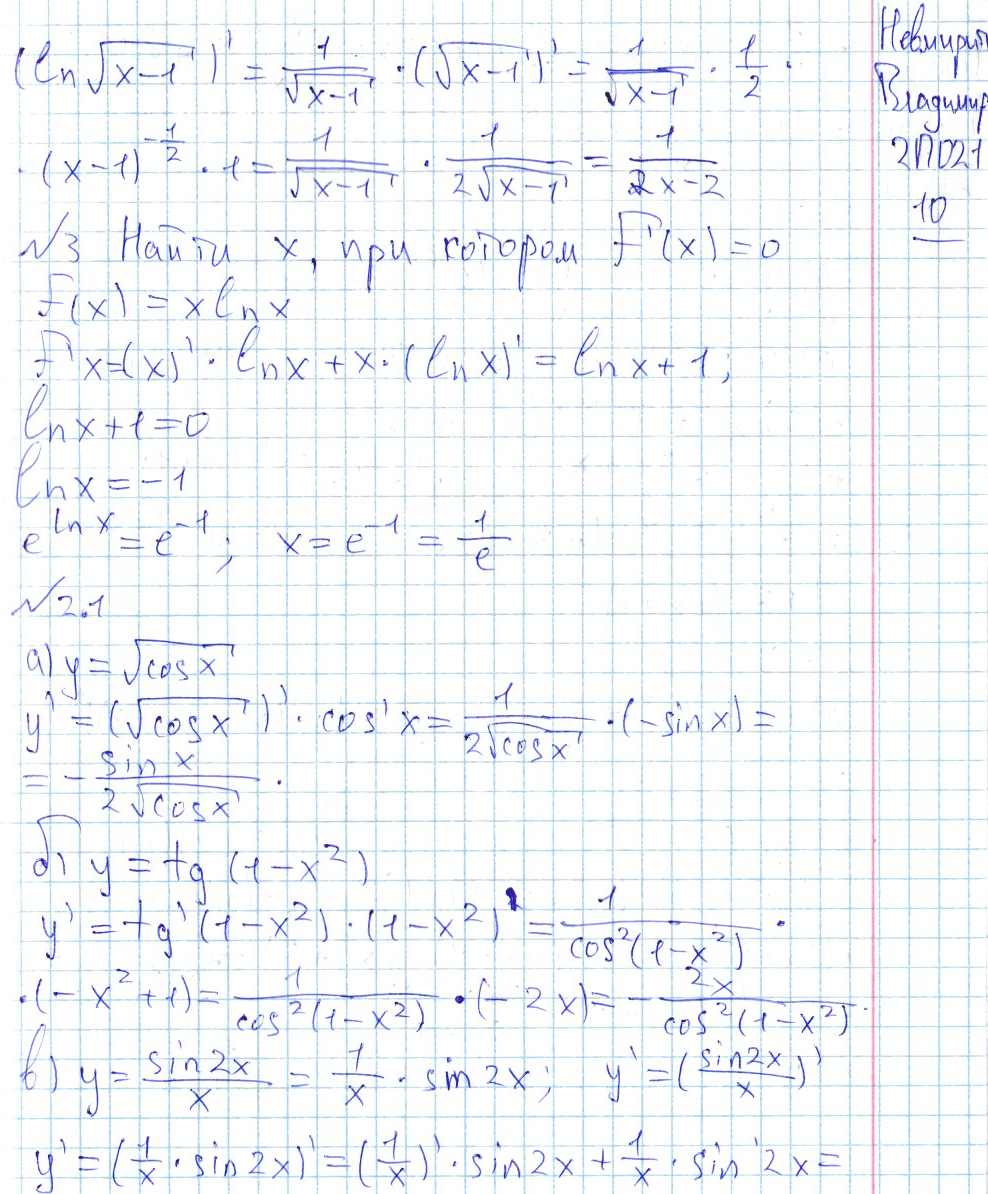 (ln√(x-1))' = 1/√(x-1) · (√(x-1))' = 1/√(x-1) · 1/2 ·
· (x-1)^(-1/2) · 1 = 1/√(x-1) · 1/(2√(x-1)) = 1/(2x-2)
№3 Найти x, при котором f'(x)=0
f(x) = x ln x
f'x=(x)' · ln x + x · (ln x)' = ln x + 1;
ln x + 1 = 0
ln x = -1
e^(ln x) = e^(-1); x = e^(-1) = 1/e
№2.1
а) y = √(cos x)
y' = (√(cos x))' · cos' x = 1/(2√(cos x)) · (-sin x) =
= - sin x/(2√(cos x)).
б) y = tg (1-x²)
y' = tg'(1-x²) · (1-x²)' = 1/(cos²(1-x²)) ·
· (-x²+1) = 1/(cos²(1-x²)) · (-2x) = - 2x/(cos²(1-x²)).
в) y = sin2x/x = 1/x · sin 2x; y' = (sin2x/x)'
y' = (1/x · sin 2x)' = (1/x)' · sin 2x + 1/x · sin' 2x =
Владимир
2ПО21
10